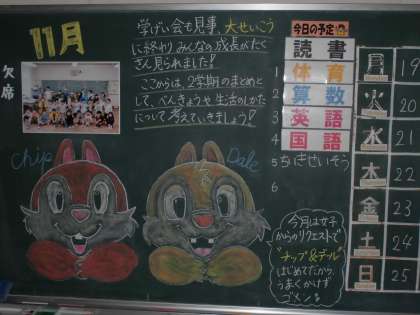 11月
欠席
学げい会も見事、大せいこう
に終わり、みんなの成長がたく
さん見られました!
ここからは、2学期のまとめと
して、べんきょうや生活のしかた
について考えていきましょう!
今日の予定
読書
1 体育
2 算数
3 英語
4 国語
5 ちいきせいそう
6
月 19
火 20
水 21
木 22
金 23
土 24
日 25
Chip
Dale
今月は女子
からのリクエストで
"チップ&デール"
はじめてだから、
うまくかけず
ゴメン